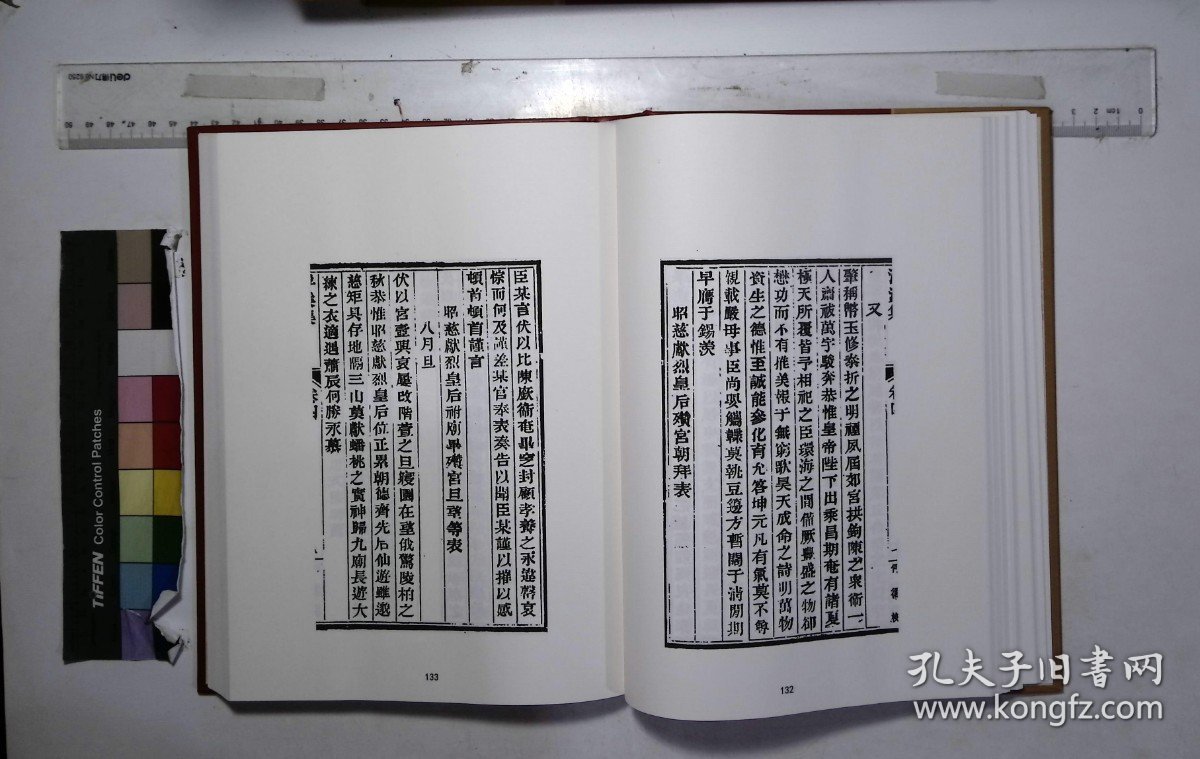 又
聿稱幣玉修泰折之明禋夙屆郊宮拱鉤陳之衆衛一
人齋祓萬宇駿奔恭惟皇帝陛下出乘昌期奄有諸夏
極天所覆皆予相祀之臣環海之間備厥粢盛之物卻
懋功而不有推美報于無窮歌昊天成命之詩明萬物
資生之德惟至誠能參化育允答坤元凡有氣莫不尊
親載嚴母事臣尚嬰觸韄莫執豆籩方暫閟于淸閒期
早膺于錫羨
昭慈獻烈皇后欑宮朝拜表
132
臣某言伏以比陳
封顧孝養之永違
悰而何及謹差某官奉表奏告以聞臣某謹以摧以感
頓首頓首謹言
昭慈獻烈皇后祔廟畢欑宮旦望等表
八月旦
伏以宮壼興哀屢改階蓂之旦寢園在望俄驚陵柏之
秋恭惟昭慈獻烈皇后位正累朝德齊先后仙遊雖邈
慈矩具存地隔三山莫獻蟠桃之實神歸九廟長遊大
練之衣適遇蕭辰何勝永慕
卷四
133
deli
TIFFEN Color Control Patches
孔夫子旧书网
www.kongfz.com